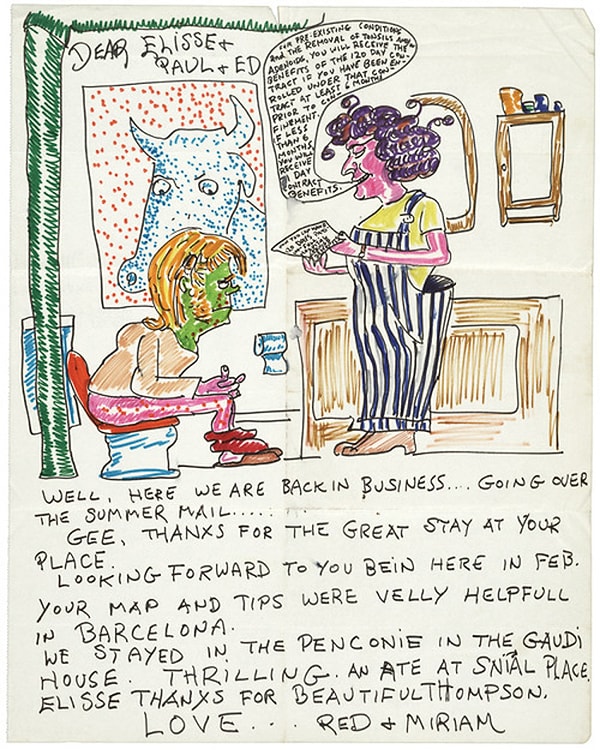 DEAR ELISSE +
PAUL + ED
FOR PRE-EXISTING CONDITIONS
AND THE REMOVAL OF TONSILS AND/OR
ADENOIDS, YOU WILL RECEIVE THE
BENEFITS OF THE 120 DAY CON-
TRACT IF YOU HAVE BEEN EN-
ROLLED UNDER THAT CON-
TRACT AT LEAST 6 MONTHS
PRIOR TO CON-
FINEMENT.
IF LESS
THAN 6
MONTHS,
YOU WILL
RECEIVE
21 DAY
CONTRACT
BENEFITS.
WELL, HERE WE ARE BACK IN BUSINESS.... GOING OVER
THE SUMMER MAIL.....
GEE, THANXS FOR THE GREAT STAY AT YOUR
PLACE.
LOOKING FORWARD TO YOU BEIN HERE IN FEB.
YOUR MAP AND TIPS WERE VELLY HELPFULL
IN BARCELONA.
WE STAYED IN THE PENCONIE IN THE GAUDI
HOUSE. THRILLING. AN ATE AT SNIAL PLACE.
ELISSE THANXS FOR BEAUTIFUL THOMPSON.
LOVE... RED + MIRIAM